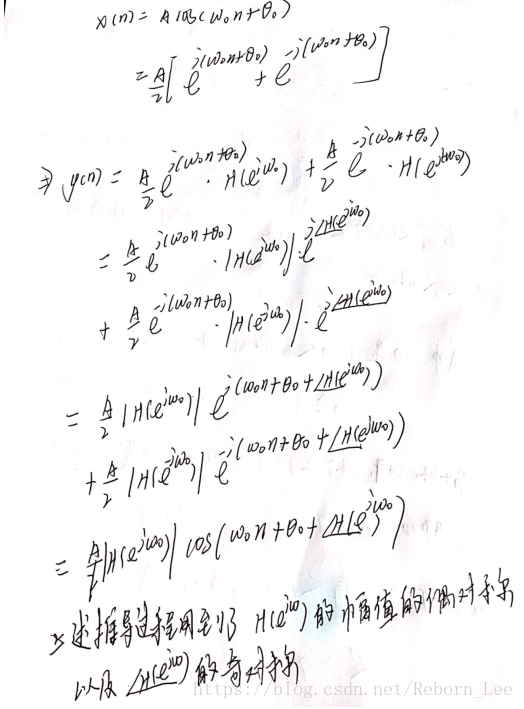 x(n) = A cos(ω₀n+θ₀)
= A/2 [ e^{j(ω₀n+θ₀)} + e^{-j(ω₀n+θ₀)} ]
⇒ y(n) = A/2 e^{j(ω₀n+θ₀)} · H(e^{jω₀}) + A/2 e^{-j(ω₀n+θ₀)} · H(e^{-jω₀})
= A/2 e^{j(ω₀n+θ₀)} · |H(e^{jω₀})| · e^{j∠H(e^{jω₀})}
+ A/2 e^{-j(ω₀n+θ₀)} · |H(e^{-jω₀})| · e^{j∠H(e^{-jω₀})}
= A/2 |H(e^{jω₀})| e^{j(ω₀n+θ₀+∠H(e^{jω₀}))}
+ A/2 |H(e^{-jω₀})| e^{-j(ω₀n+θ₀+∠H(e^{jω₀}))}
= A|H(e^{jω₀})| cos(ω₀n+θ₀+∠H(e^{jω₀}))
述推导过程用到了 H(e^{jω}) 的幅值的偶对称
以及 ∠H(e^{jω}) 的奇对称
https://blog.csdn.net/Reborn_Lee